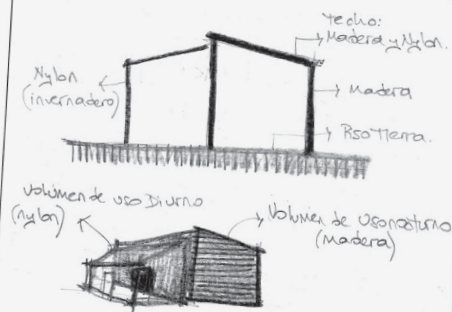 Techo:
Madera y Nylon.
Nylon
(invernadero)
Madera
Piso Tierra.
Volúmen de uso Diurno
(nylon)
Volúmen de Uso nocturno
(madera)